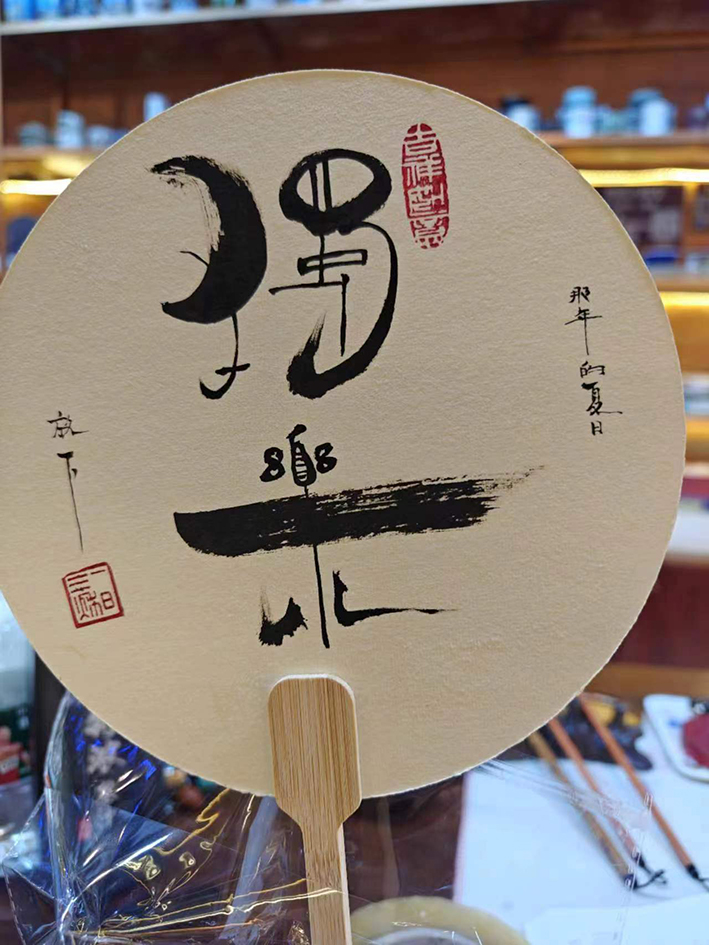 那年的夏日
吉祥如意
獨樂
放下